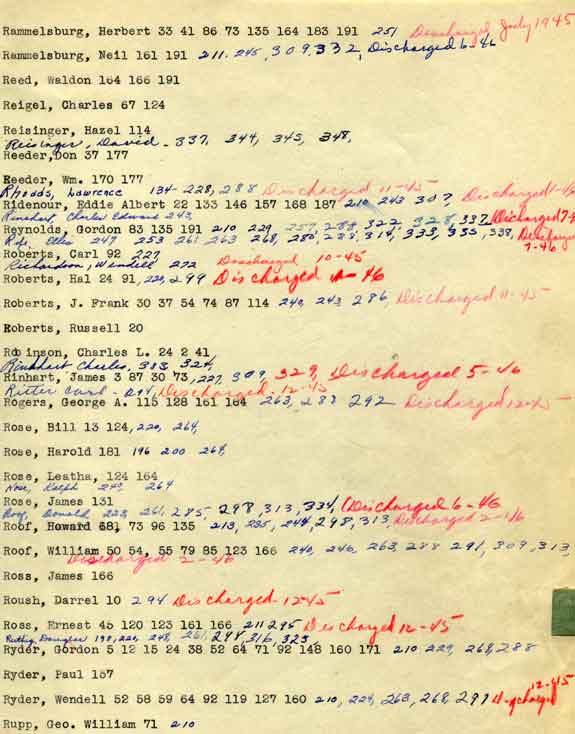 Rammelsburg, Herbert 33 41 86 73 135 164 183 191 251 Discharged July 1945
Rammelsburg, Neil 161 191 211. 245, 309, 332, Discharged 6-46
Reed, Waldon 164 166 191
Reigel, Charles 67 124
Reisinger, Hazel 114
Reisinger, David - 337, 344, 345, 348,
Reeder, Don 37 177
Reeder, Wm. 170 177
Rhodds, Lawrence 134 - 228, 288 Discharged 11-45
Ridenour, Eddie Albert 22 133 146 157 168 187 210 243 307, Discharged
Rinehart, Charles Edward 243,
Reynolds, Gordon 83 135 191 210 229 257, 288, 322, 328, 337, Discharged
247 253 261, 263 268, 280, 288, 314, 333, 335, 338, Discharged
7-46
Roberts, Carl 92 227
Discharged 10-45
Richardson, Wendell 272
Roberts, Hal 24 91, 299 Discharged 46
Roberts, J. Frank 30 37 54 74 87 114 240, 243, 286, Discharged 11-45
Roberts, Russell 20
Robinson, Charles L. 24 2 41
Rinehart Charles, 303 324,
Rinhart, James 3 87 30 73, 227, 309, 329, Discharged 5-46
Ritter Carl - 294, Discharged 12-45
Rogers, George A. 115 128 161 164 263, 288 292 Discharged 12-45
Rose, Bill 13 124, 220, 264,
Rose, Harold 181 196 200 264,
Rose, Leatha, 124 164
Rose, Ralph 242, 264
Rose, James 131
Roof, Donald, 223, 261, 285, 298, 313, 334, Discharged 6-46
Roof, Howard 68, 73 96 135 213, 235, 244, 298, 313, Discharged 2-46
Roof, William 50 54, 55 79 85 123 166 240, 246, 263, 288 291, 309, 313,
Discharged 2-46
Ross, James 166
Roush, Darrel 10 294 Discharged 12-45
Ross, Ernest 45 120 123 161 166 211 295 Discharged 12-45
Ruthig, Douglas 198, 220, 248, 261, 294, 316, 325
Ryder, Gordon 5 12 15 24 38 52 64 71 92 148 160 171 210 229, 268, 288
Ryder, Paul 157
12-45
Ryder, Wendell 52 58 59 64 92 119 127 160 210, 229, 263, 268, 299 Discharged
Rupp, Geo. William 71 210